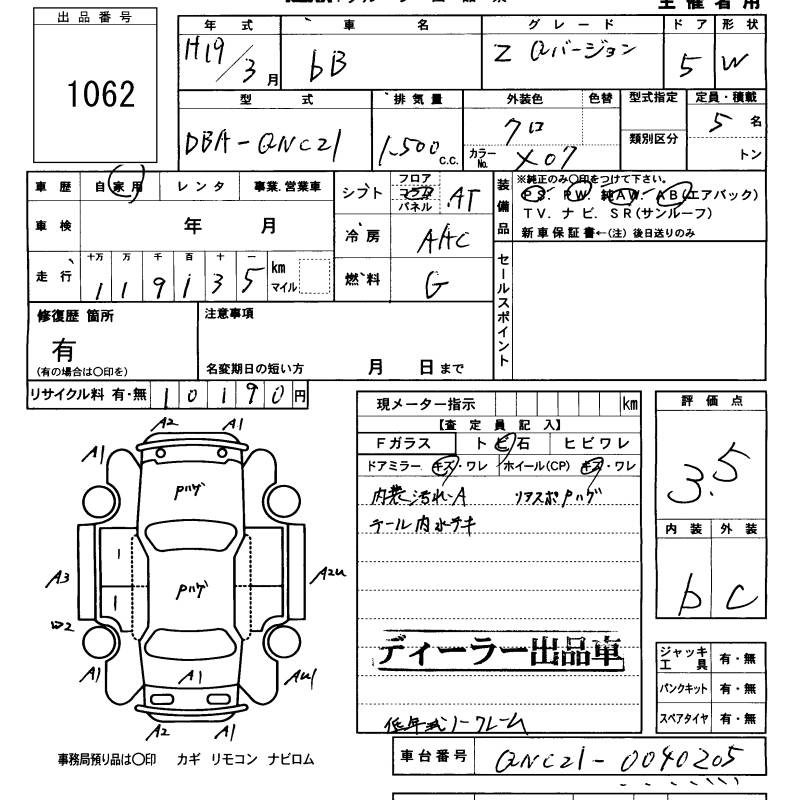 主催者用
出品番号
1062
年式 車名 グレード ドア 形状
H19/3月 bB Z Qバージョン 5 W
型式 排気量 外装色 色替 型式指定 定員・積載
DBA-QNC21 1500c.c. クロ 5名
カラーNo. X07 類別区分 トン
車歴 自家用 レンタ 事業.営業車 シフト フロア コラム パネル AT 装備品 ※純正のみ〇印をつけて下さい。
PS. PW. 純AW. AB(エアバック)
TV. ナビ. SR(サンルーフ)
車検 年 月 冷房 AAC 新車保証書←(注) 後日送りのみ
十万 万 千 百 十 一
走行 119135 km マイル 燃料 G セールスポイント
修復歴 箇所 注意事項
有
(有の場合は〇印を) 名変期日の短い方 月 日まで
リサイクル料 有・無 10190円
現メーター指示 km
【査定員記入】
Fガラス トビ石 ヒビワレ
ドアミラー キズ・ワレ ホイール(CP) キズ・ワレ
内装汚れA リアスポPハゲ
テール内水テキ
ディーラー出品車
低年式ノークレーム
評価点
3.5
内装 外装
b C
ジャッキ工具 有・無
パンクキット 有・無
スペアタイヤ 有・無
A2 A1
A1 A1
Pハゲ
1
A3 Pハゲ A2U
1
A1 A1 AU1
A2 A1
事務局預り品は〇印 カギ リモコン ナビロム
車台番号 QNC21-0040205